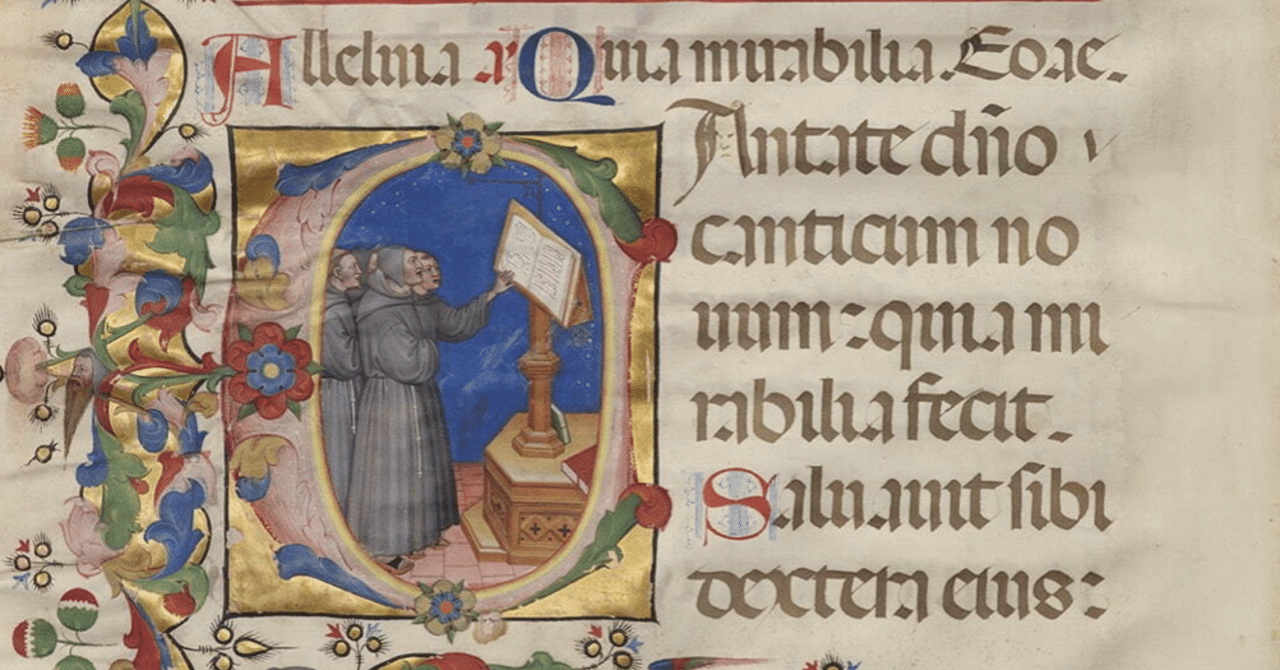 Alleluia a Quia mirabilia. Eoae.
CAntate dño
canticum no
uum: quia mi
rabilia fecit.
Saluauit sibi
dextera eius: